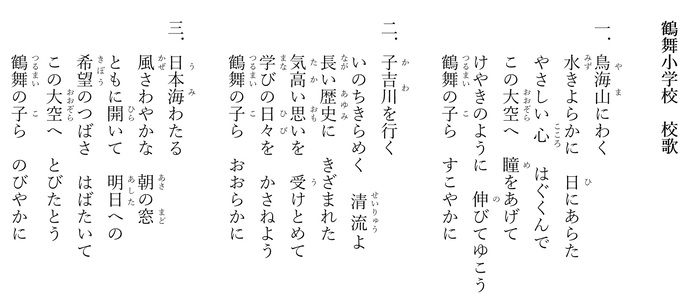 鶴舞小学校　校歌
一．鳥海山にわく
水きよらかに　日にあらた
やさしい心　はぐくんで
この大空へ　瞳をあげて
けやきのように　伸びてゆこう
鶴舞の子ら　すこやかに
二．子吉川を行く
いのちきらめく　清流よ
長い歴史に　きざまれた
気高い思いを　受けとめて
学びの日々を　かさねよう
鶴舞の子ら　おおらかに
三．日本海わたる
風さわやかな　朝の窓
ともに開いて　明日への
希望のつばさ　はばたいて
この大空へ　とびたとう
鶴舞の子ら　のびやかに